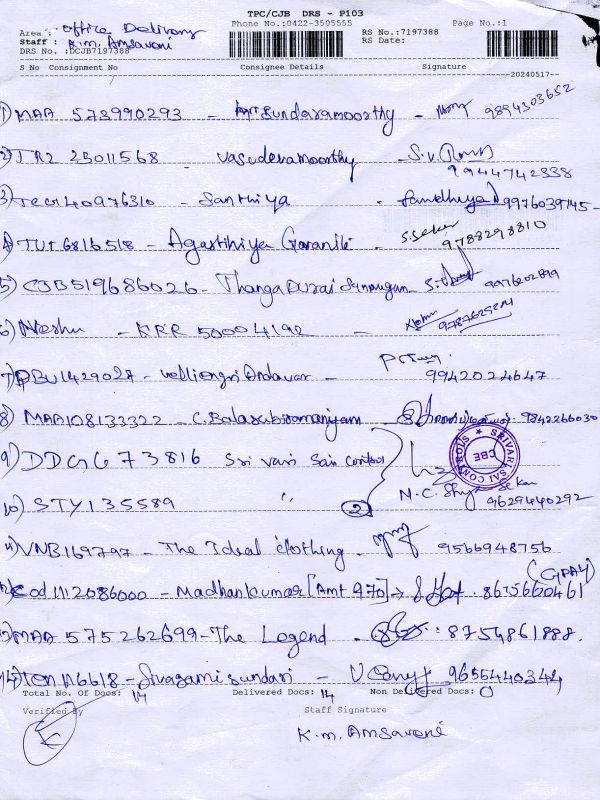 TPC/CJB DRS - P103
Area : office Delivery
Phone No.:0422-3505555
Page No.:1
Staff : K.m. Amsavani
RS No.:7197388
DRS No.:DCJB7197388
RS Date:
S No Consignment No Consignee Details Signature
20240517
1) MAA 573990293 - Sundaramoorthy - 9894303652
2) 25011568 Vasudevamoorthy - 9944742338
3) - Santhiya - 9976039745
4) TUT 6816518 - Agasthiya - S. Sekar 9788298810
5) CJB519686026 - 9976202899
6) Neshu - KRR 50004192 -
7) PBU1429027 - velliengri Andavar - 99420224647
8) MAA108133322 - C. Balasubramaniyam - 9842266030
9) DDG 673816 Sri Vari Sai Controls
SRIVARI SAI CONTROLS CBE
10) STY135589 " 2 N.C. 9629440292
11) VNB169797 - The Ideal clothing - 9566948756
12) cod1112086000 - Madhankumar [Amt 970] → 8675660461 (GPAY)
13) MAA 575262699 - The Legend - : 8754861888.
14) - Sivagami sundari - 9655440344
Total No. Of Docs: 14 Delivered Docs: 14 Non Delivered Docs: 0
Verified By Staff Signature
K.m. Amsavani